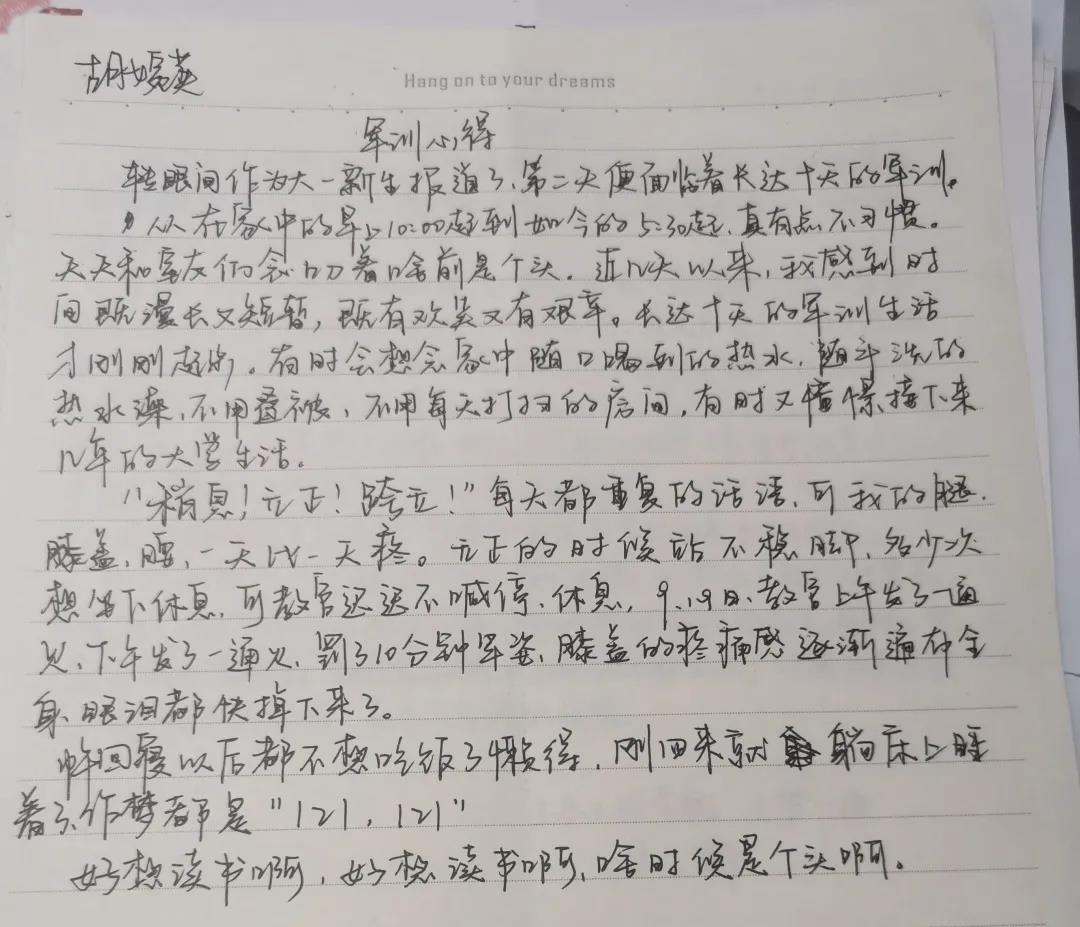 胡嫣英
Hang on to your dreams
军训心得
转眼间作为大一新生报道了、第二天便面临着长达十天的军训。
从在家中的早上10:00起到如今的5:30起,真有点不习惯。
天天和室友们念叨着啥前是个头.近几天以来,我感到时
间既漫长又短暂,既有欢笑又有艰辛。长达十天的军训生活
才刚刚起步。有时会想念家中随口喝到的热水,随手洗的
热水澡、不用叠被、不用每天打扫的房间,有时又憧憬接下来
几年的大学生活。
“稍息!立正!跨立!”每天都重复的话语、可我的腿、
膝盖、腰、一天比一天疼。立正的时候站不稳脚、多少次
想坐下休息、可教官迟迟不喊停、休息,9.19日、教官上午发了一通
火、下午发了一通火、罚了10分钟军姿、膝盖的疼痛感逐渐遍布全
身、眼泪都快掉下来了。
中午回寝以后都不想吃饭了懒得、刚回来就躺床上睡
着了、作梦都是“121,121”
好想读书啊,好想读书啊、啥时候是个头啊。